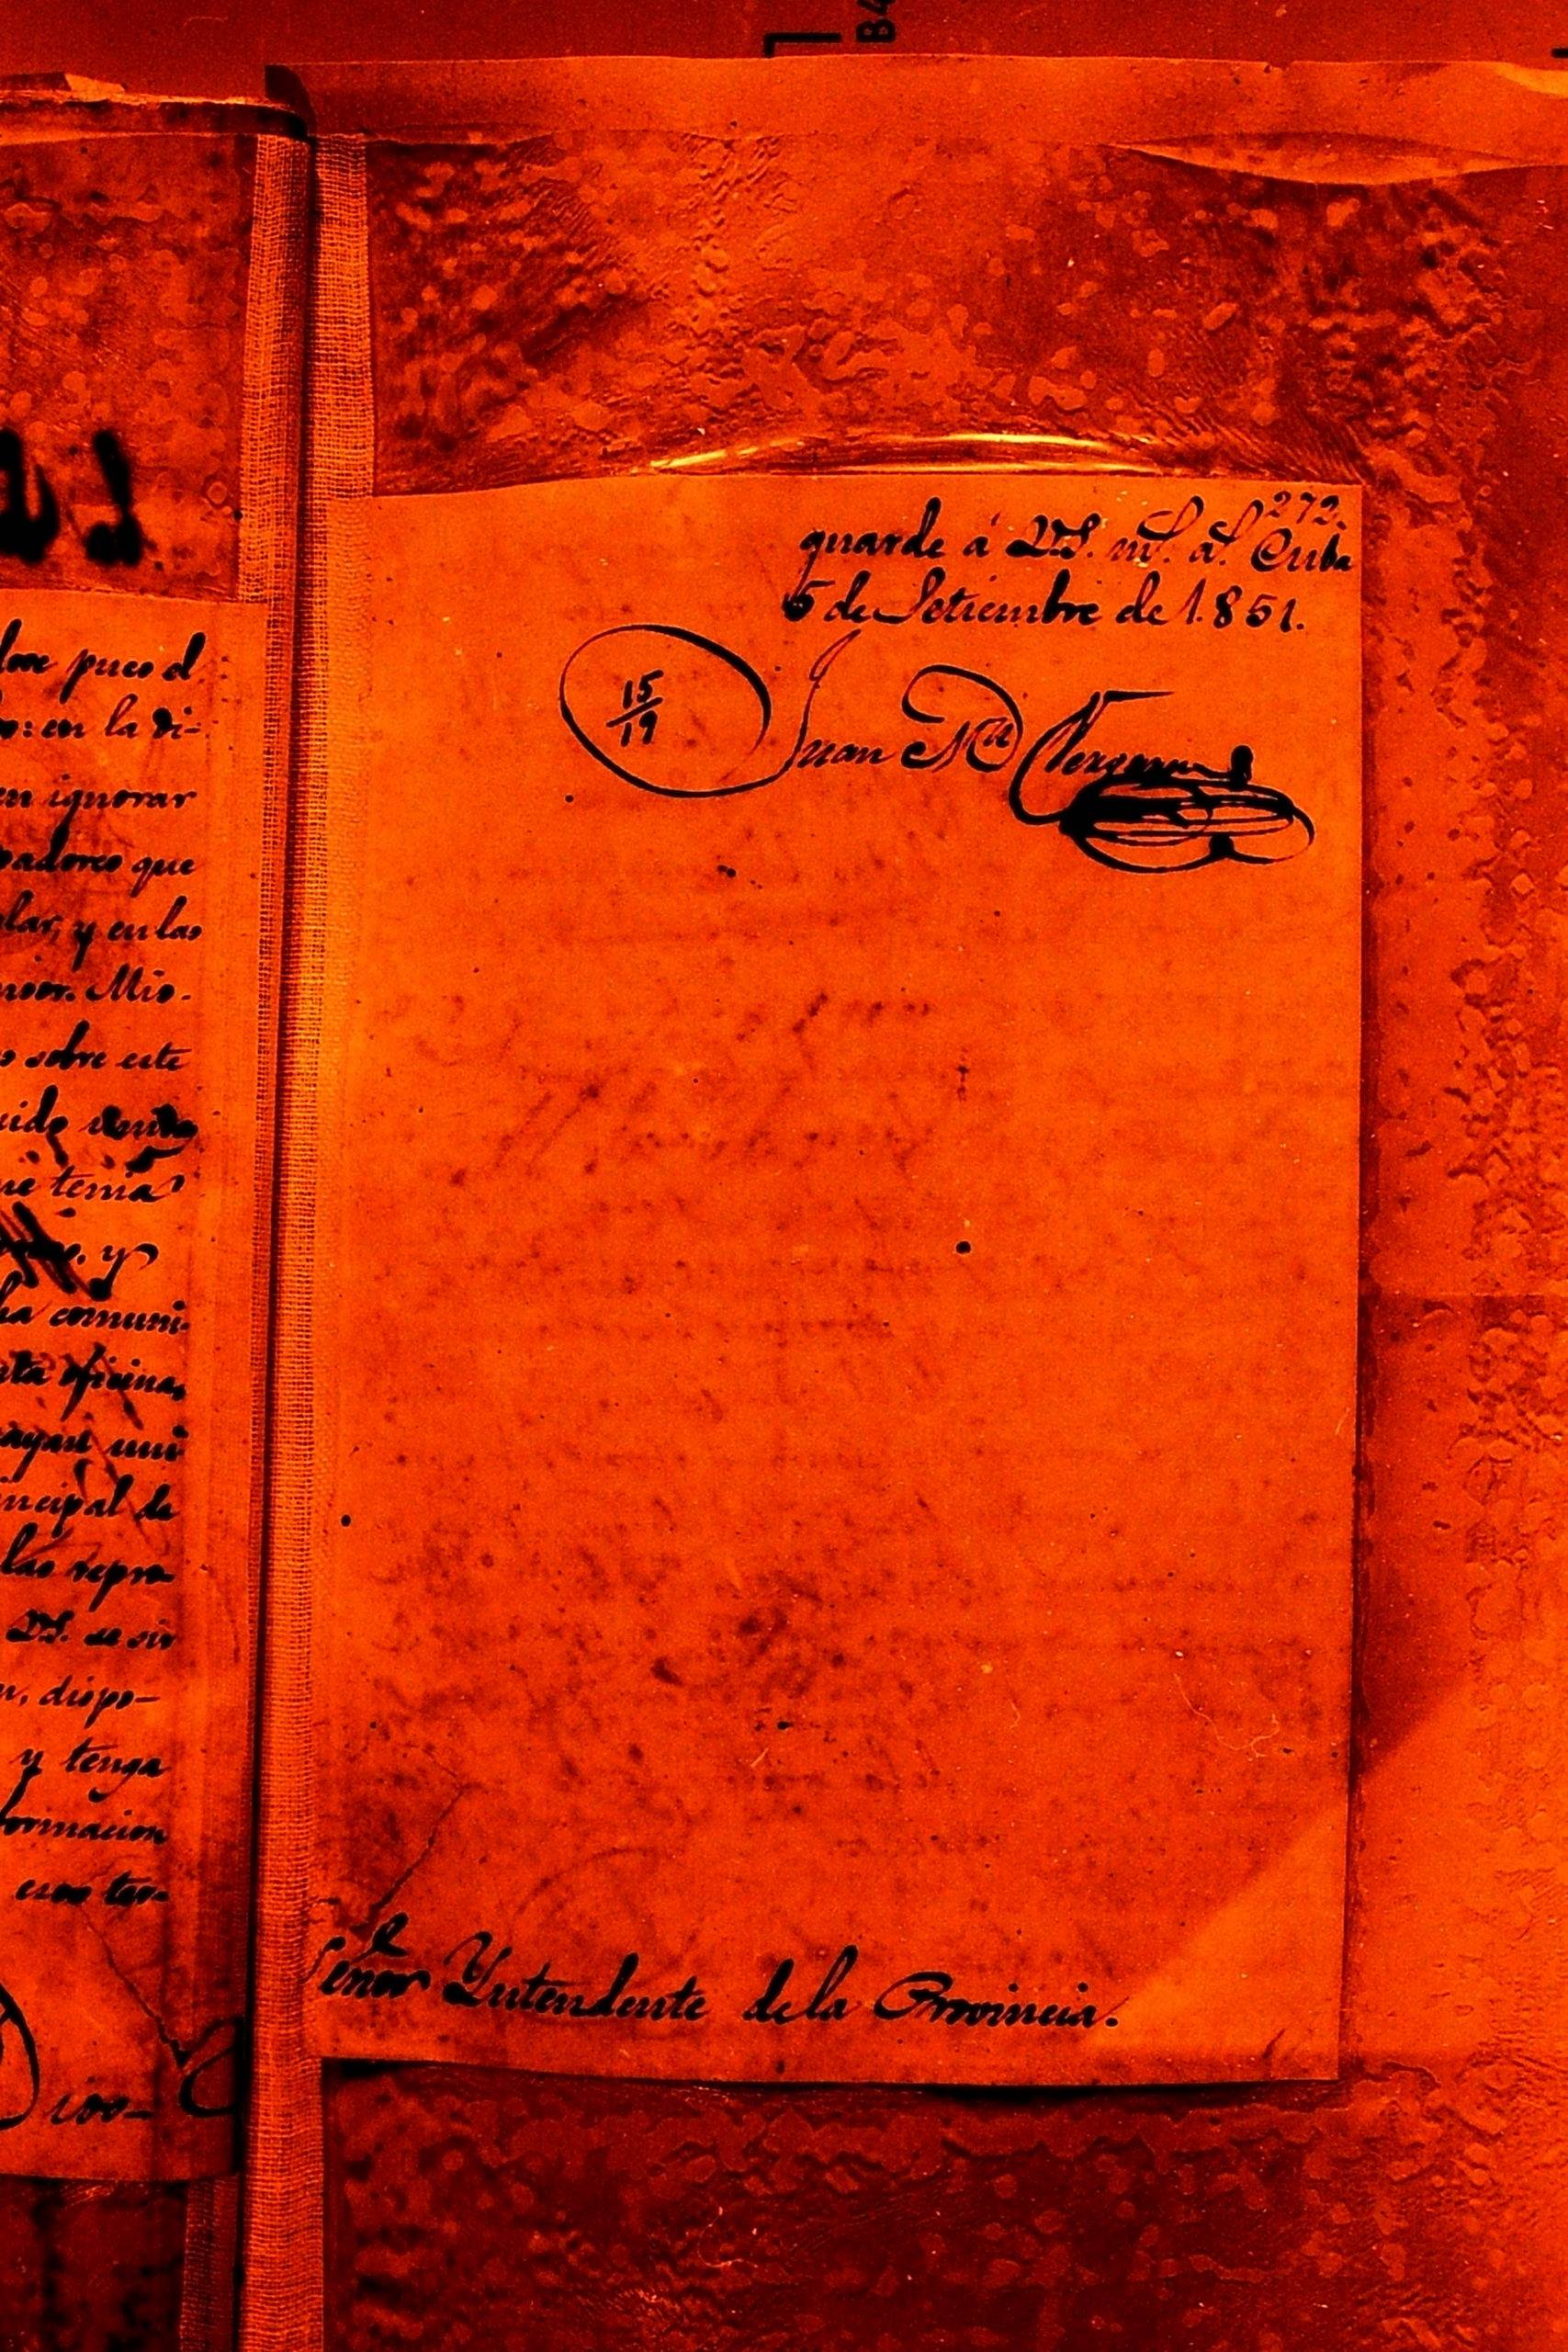 B4
lose pues el
en la di-
en ignorar
padores que
lar, y en las
Mio-
sobre este
ue tenia
y
ha comuni-
oficinas
ncipal de
las repro-
VS. se sir
dispo-
y tenga
formacion
Dios
272.
guarde á VS. ms. as. Cuba
5 de Setiembre de 1.851.
15
19
Juan Ma
Señor Yntendente de la Provincia.